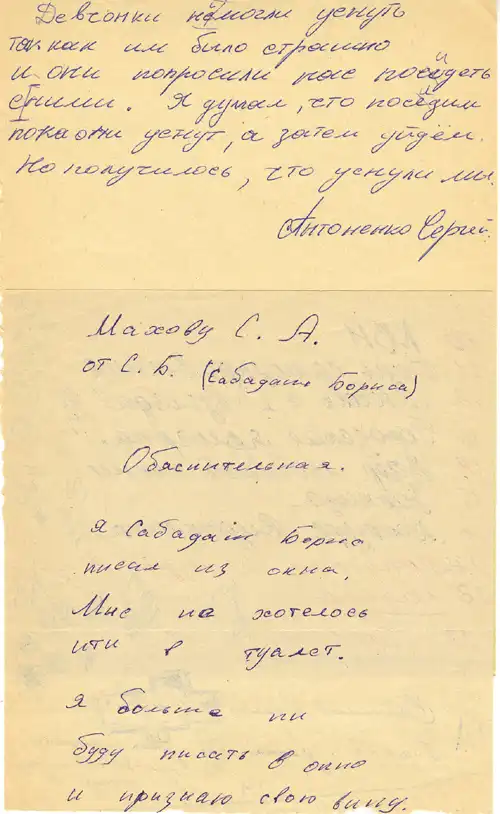 Девчонки немогли уснуть
так как им было страшно
и они попросили нас посидеть
сними. Я думал, что посидим
пока они уснут, а затем уйдём.
Но получилось, что уснули мы.
Антоненко Сергей.
Махову С. А.
от С. Б. (Сабадаш Бориса)
Обяснительная.
Я Сабадаш Борис
писил из окна,
Мне не хотелось
ити в туалет.
Я больше ни
буду писать в окно
и признаю свою вину.